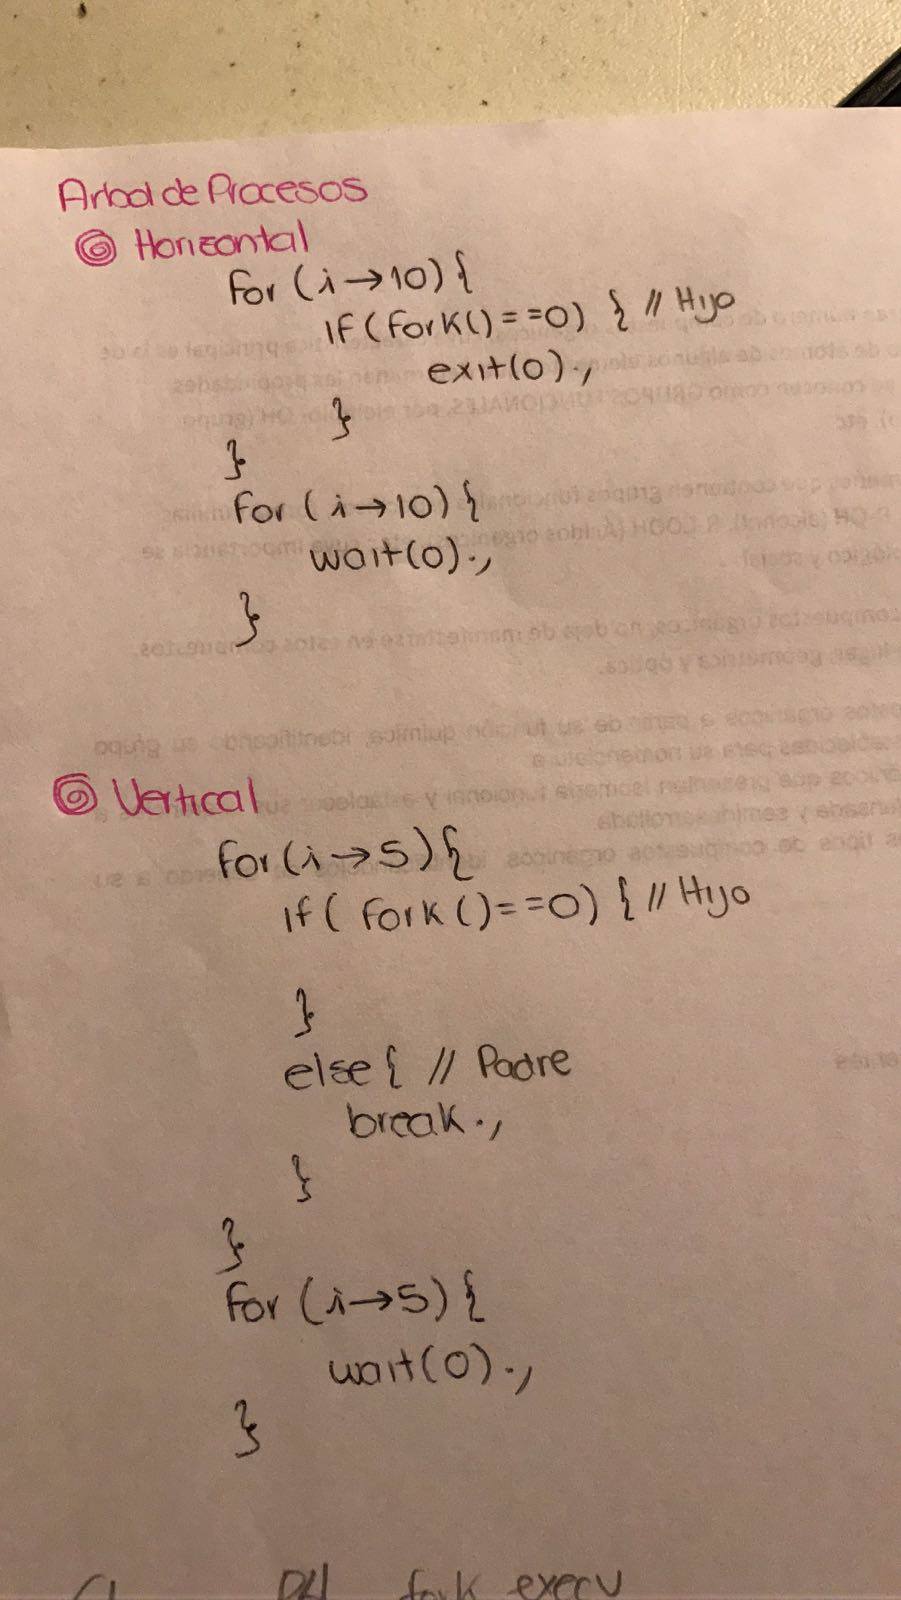 Arbol de Procesos
Horizontal
for (i→10) {
if (fork() == 0) { // Hijo
exit(0);
}
}
for (i→10) {
wait(0);
}
Vertical
for (i→5) {
if ( fork () == 0) { // Hijo
}
else { // Padre
break;
}
}
for (i→5) {
wait(0);
}
fork execv